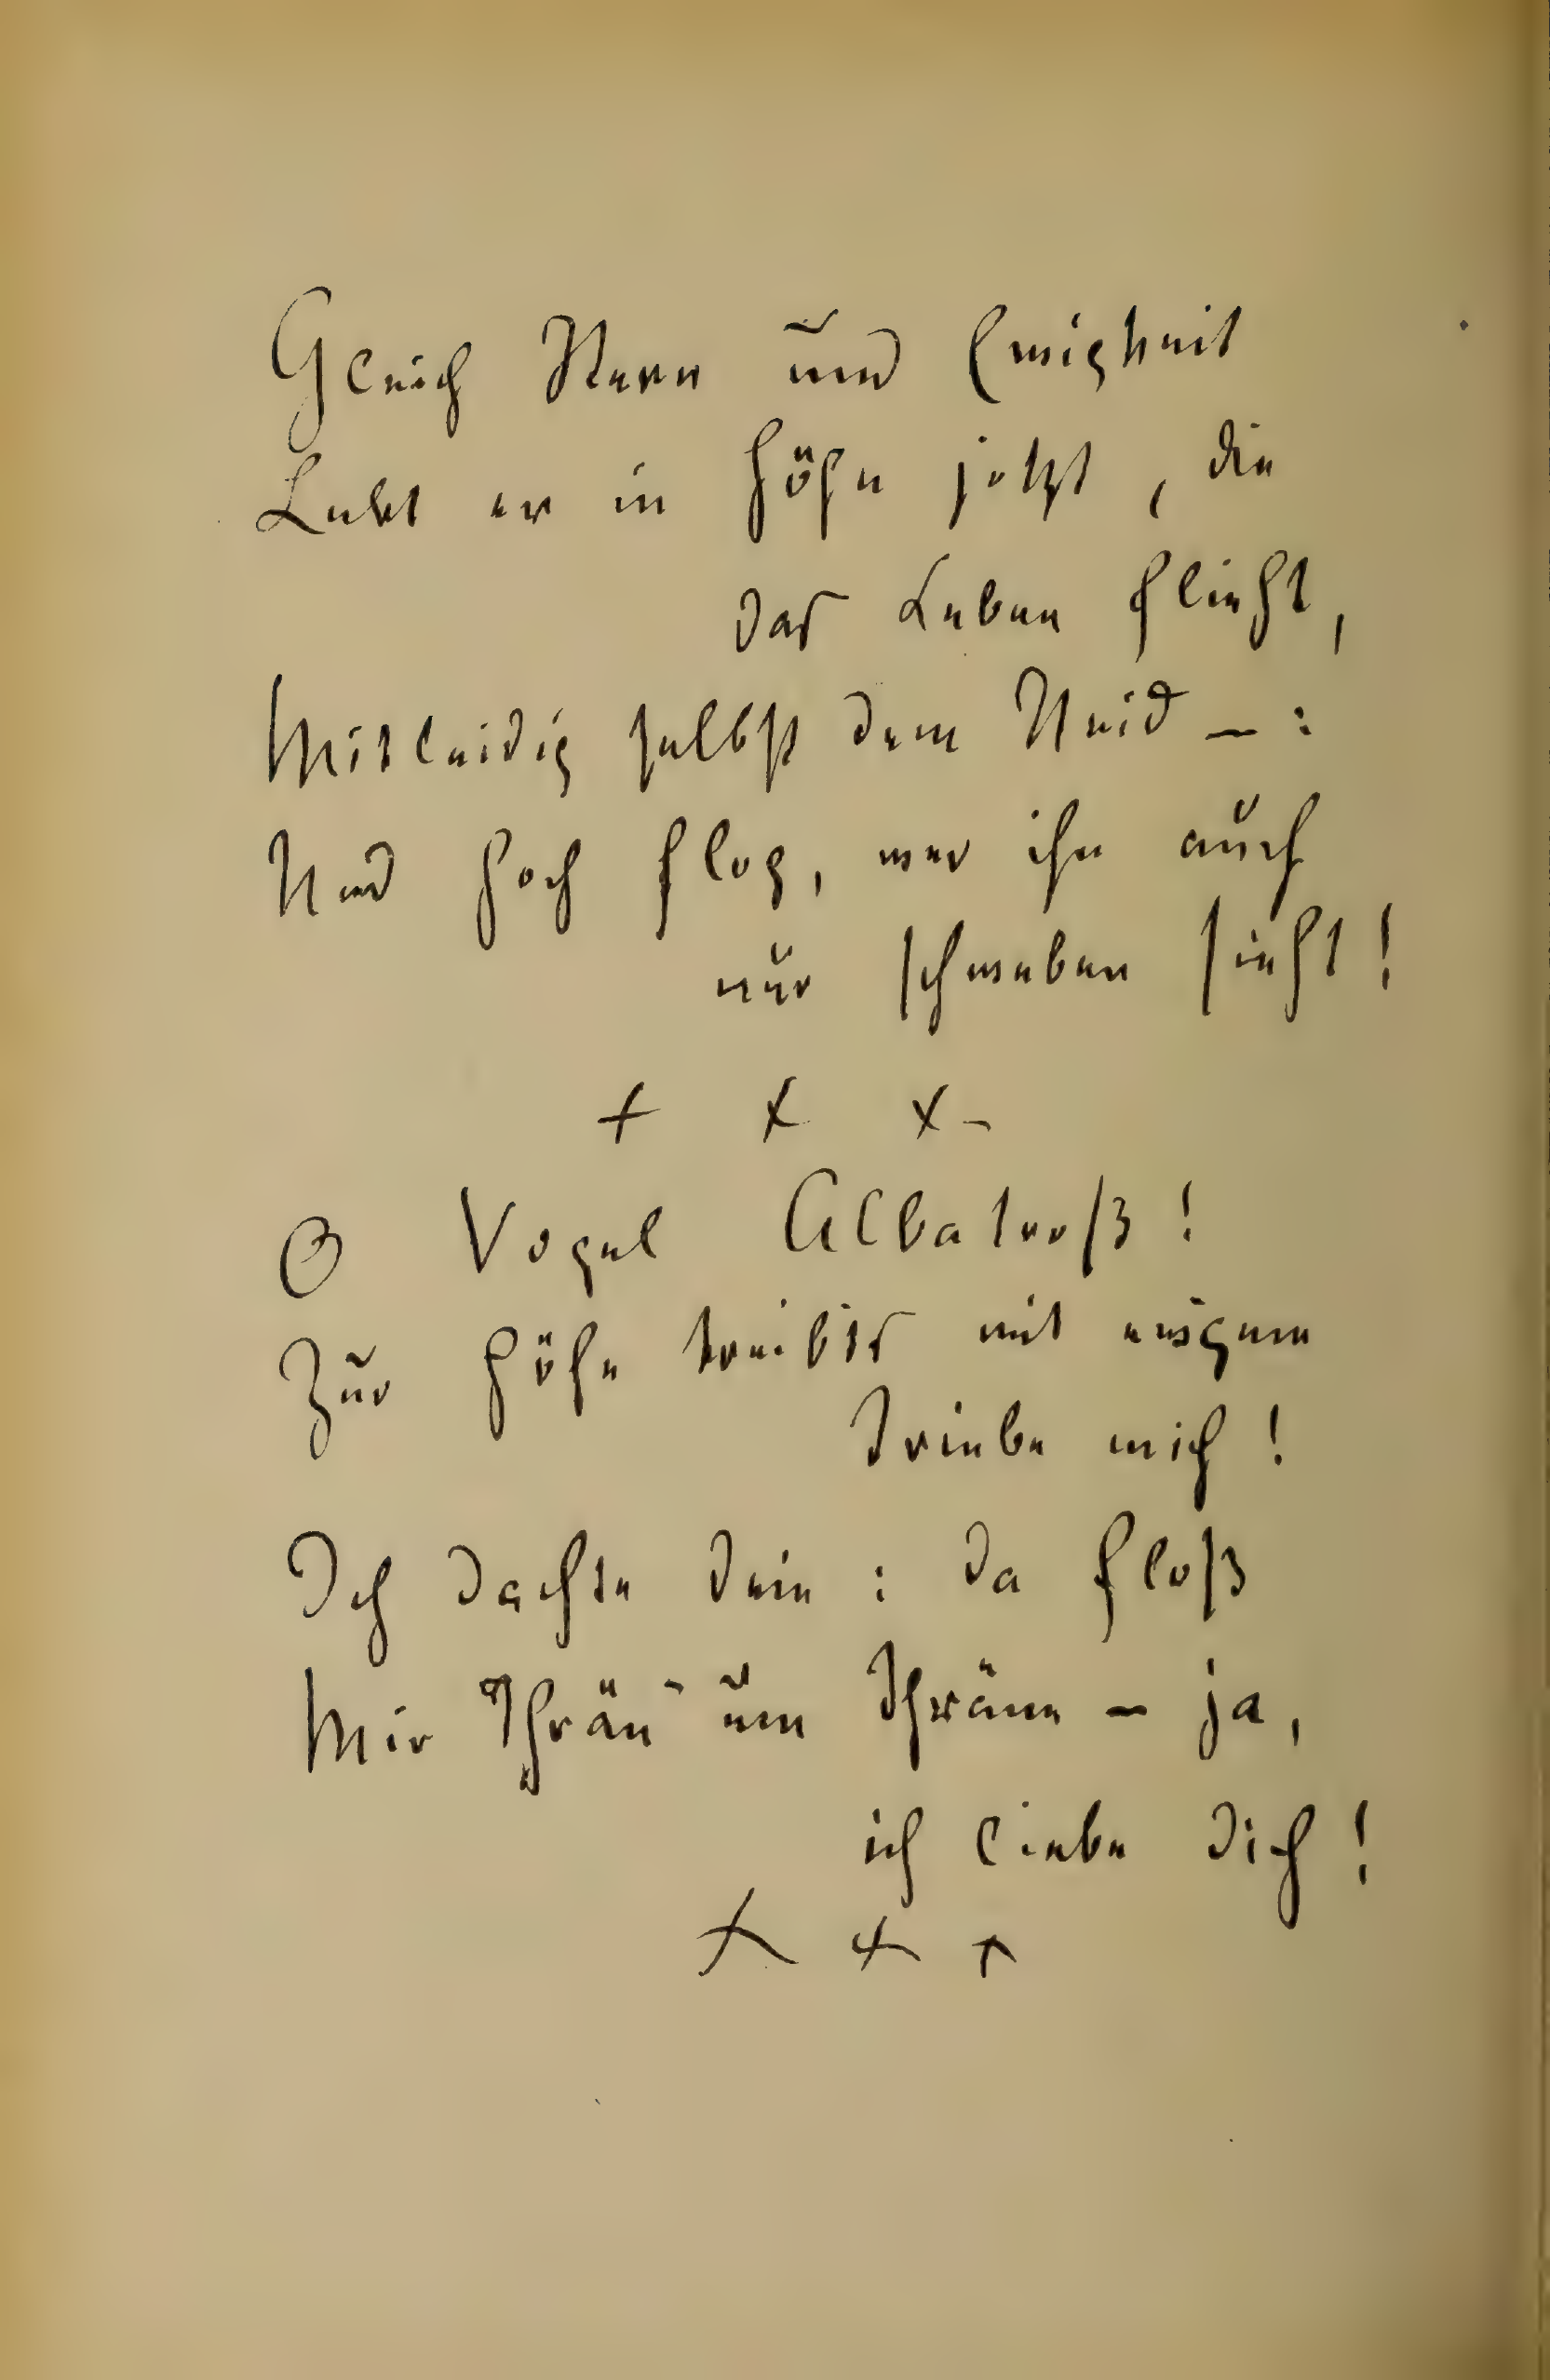 Gleich Stern und Ewigkeit
Lebt er in Höhn jetzt, die
das Leben flieht,
Mitleidig selbst dem Neid –:
Und hoch flog, wer ihn auch
nur schweben sieht!
+ x x –
O Vogel Albatroß!
Zur Höhe treibts mit ewgem
Triebe mich!
Ich dachte dein: da floß
Mir Thrän' um Thräne – ja,
ich liebe dich!
x x x